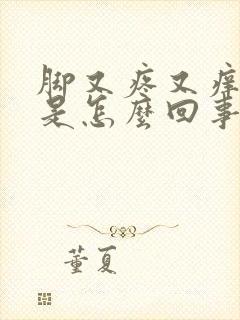 脚又疼又痒
是怎麼回事
董夏